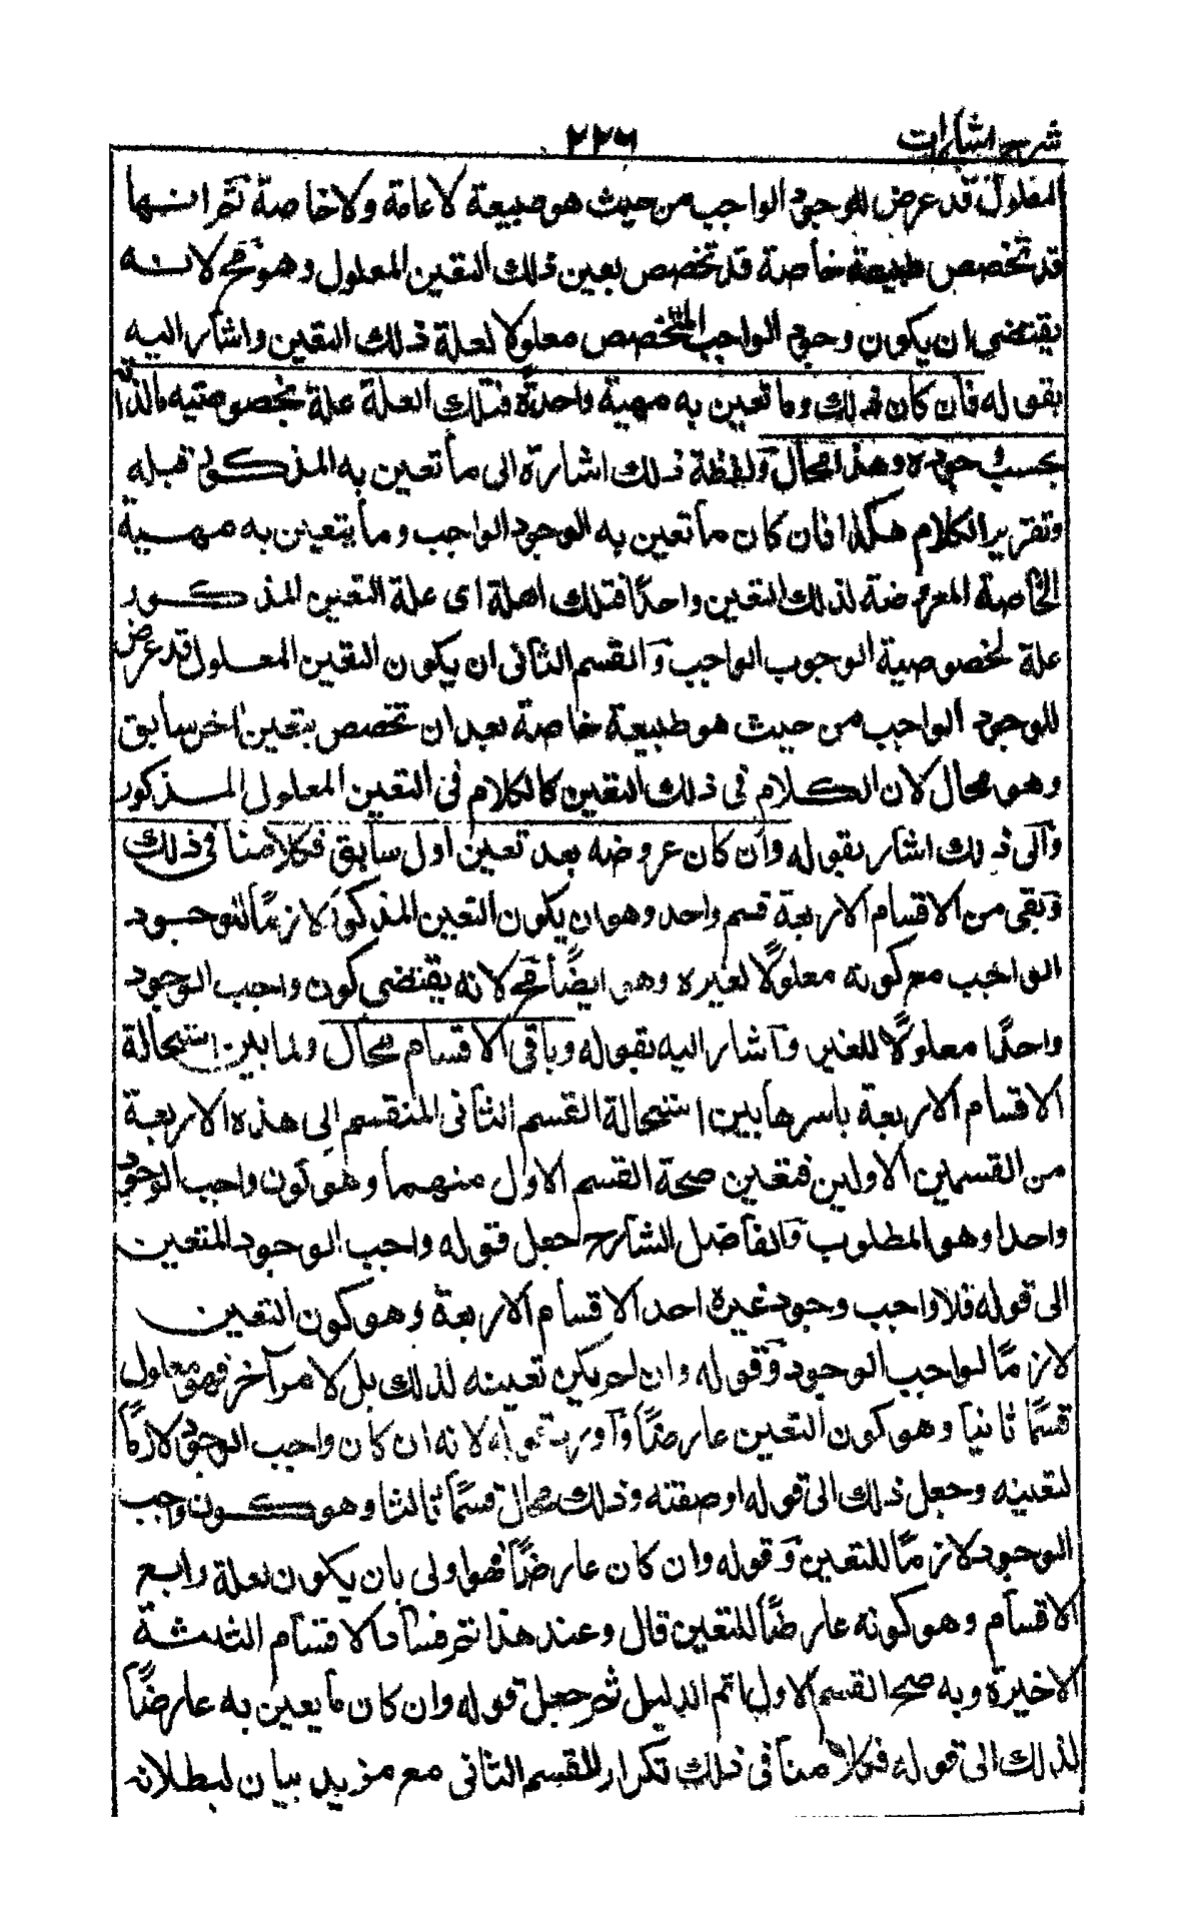 شرح اشارات
٢٢٦
المعلول قد عرض للوجود الواجب من حيث هو طبيعة لا عامة ولا خاصة ثم انها
قد تخصص طبيعة خاصة قد تخصص بعين ذلك التعين المعلول وهو مح لانه
يقتضى ان يكون وجود الواجب المتخصص معلولا لعلة ذلك التعين واشار اليه
بقوله فان كان ذلك وما تعين به مهية واحدة فتلك العلة علة لخصوصيته ما لذاته
بحسب وجوده وهذا محال ولفظة ذلك اشارة الى ما تعين به المذكور قبله
وتقرير الكلام هكذا فان كان ما تعين به الوجود الواجب وما يتعين به مهية
الخاصة المعروضة لذلك التعين واحدا فتلك العلة اى علة التعين المذكور
علة لخصوصية الوجوب الواجب والقسم الثانى ان يكون التعين المعلول قد عرض
للوجود الواجب من حيث هو طبيعة خاصة بعد ان تخصص بتعين اخر سابق
وهو محال لان الكلام فى ذلك التعين كالكلام فى التعين المعلول المذكور
والى ذلك اشار بقوله وان كان عروضه بعد تعين اول سابق فكلامنا فى ذلك
وبقى من الاقسام الاربعة قسم واحد وهو ان يكون التعين المذكور لازمًا للوجود
الواجب مع كونه معلولًا لغيره وهو ايضًا مح لانه يقتضى كون واجب الوجود
واحدًا معلولًا للغير واشار اليه بقوله وباقى الاقسام محال ولما بين استحالة
الاقسام الاربعة باسرها بين استحالة القسم الثانى المنقسم الى هذه الاربعة
من القسمين الاولين فتعين صحة القسم الاول منهما وهو كون واجب الوجود
واحدا وهو المطلوب والفاضل الشارح جعل قوله واجب الوجود المتعين
الى قوله فلا واجب وجود غيره احد الاقسام الاربعة وهو كون التعين
لازمًا لواجب الوجود وقوله وان لم يكن تعينه لذلك بل لامر آخر فهو معلول
قسمًا ثانيا وهو كون التعين عارضًا واورد قوله لانه ان كان واجب الوجود لازمًا
لتعينه وجعل ذلك الى قوله او صفته وذلك محال قسمًا ثالثا وهو كون واجب
الوجود لازمًا للتعين وقوله وان كان عارضًا فهو اولى بان يكون لعلة رابع
الاقسام وهو كونه عارضًا للتعين قال وعند هذا تم فساد الاقسام الثلثة
الاخيرة وبه صح القسم الاول اتم الدليل ثم جعل قوله وان كان ما يعين به عارضًا
لذلك الى قوله فكلامنا فى ذلك تكرار للقسم الثانى مع مزيد بيان لبطلانه